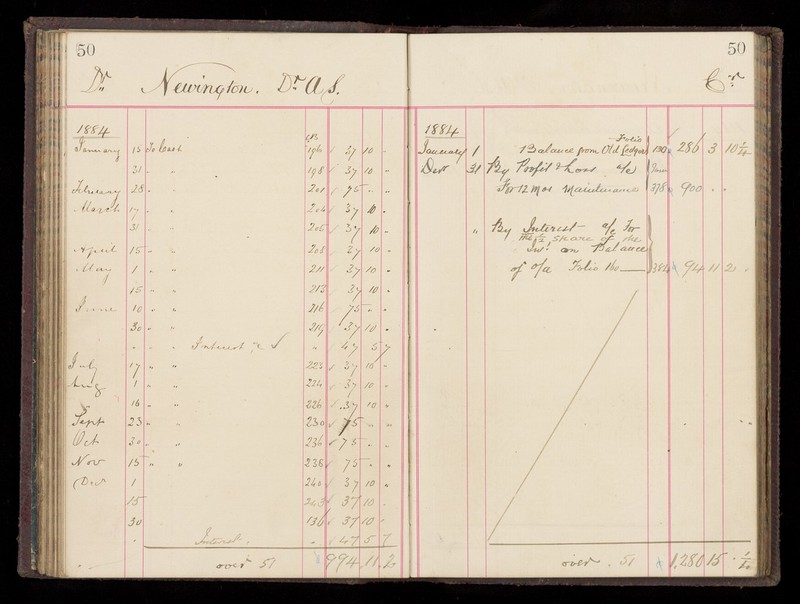 50
Dr. Newington. Dr A. S.
1884
January 15 To Cash 196 37 10 -
31 " " 198 37 10 -
February 28 " " 201 75 " "
March 17 " " 204 37 10 -
31 " " 206 37 10 -
April 15 " " 208 37 10 -
May 1 " " 211 37 10 -
15 " " 213 37 10 -
June 10 " " 216 75 " "
30 " " 219 37 10 -
" " " Interest " 47 5 7
July 17 " " 223 37 10 -
Aug 1 " " 224 37 10 -
16 " " 226 37 10 -
Sept 23 " " 230 75 " "
Oct 30 " " 236 75 " "
Nov 15 " " 238 75 " "
Decr 1 " " 240 37 10 "
15 243 37 10 -
30 136 37 10 "
" Interest " 47 5 7
over 51 994 11 2
50
Cr.
1884
Folio
January 1 Balance from Old Ledger 190 286 3 10 3/4
Decr 31 By Profit & Loss a/c
For 12 Mos Maintenance 378 900 " "
" By Interest a/c For
the 1/2 share of the
Int. on Balance
of a/c Folio 160 384 94 11 2
over 51 1,280 15 " 1/2